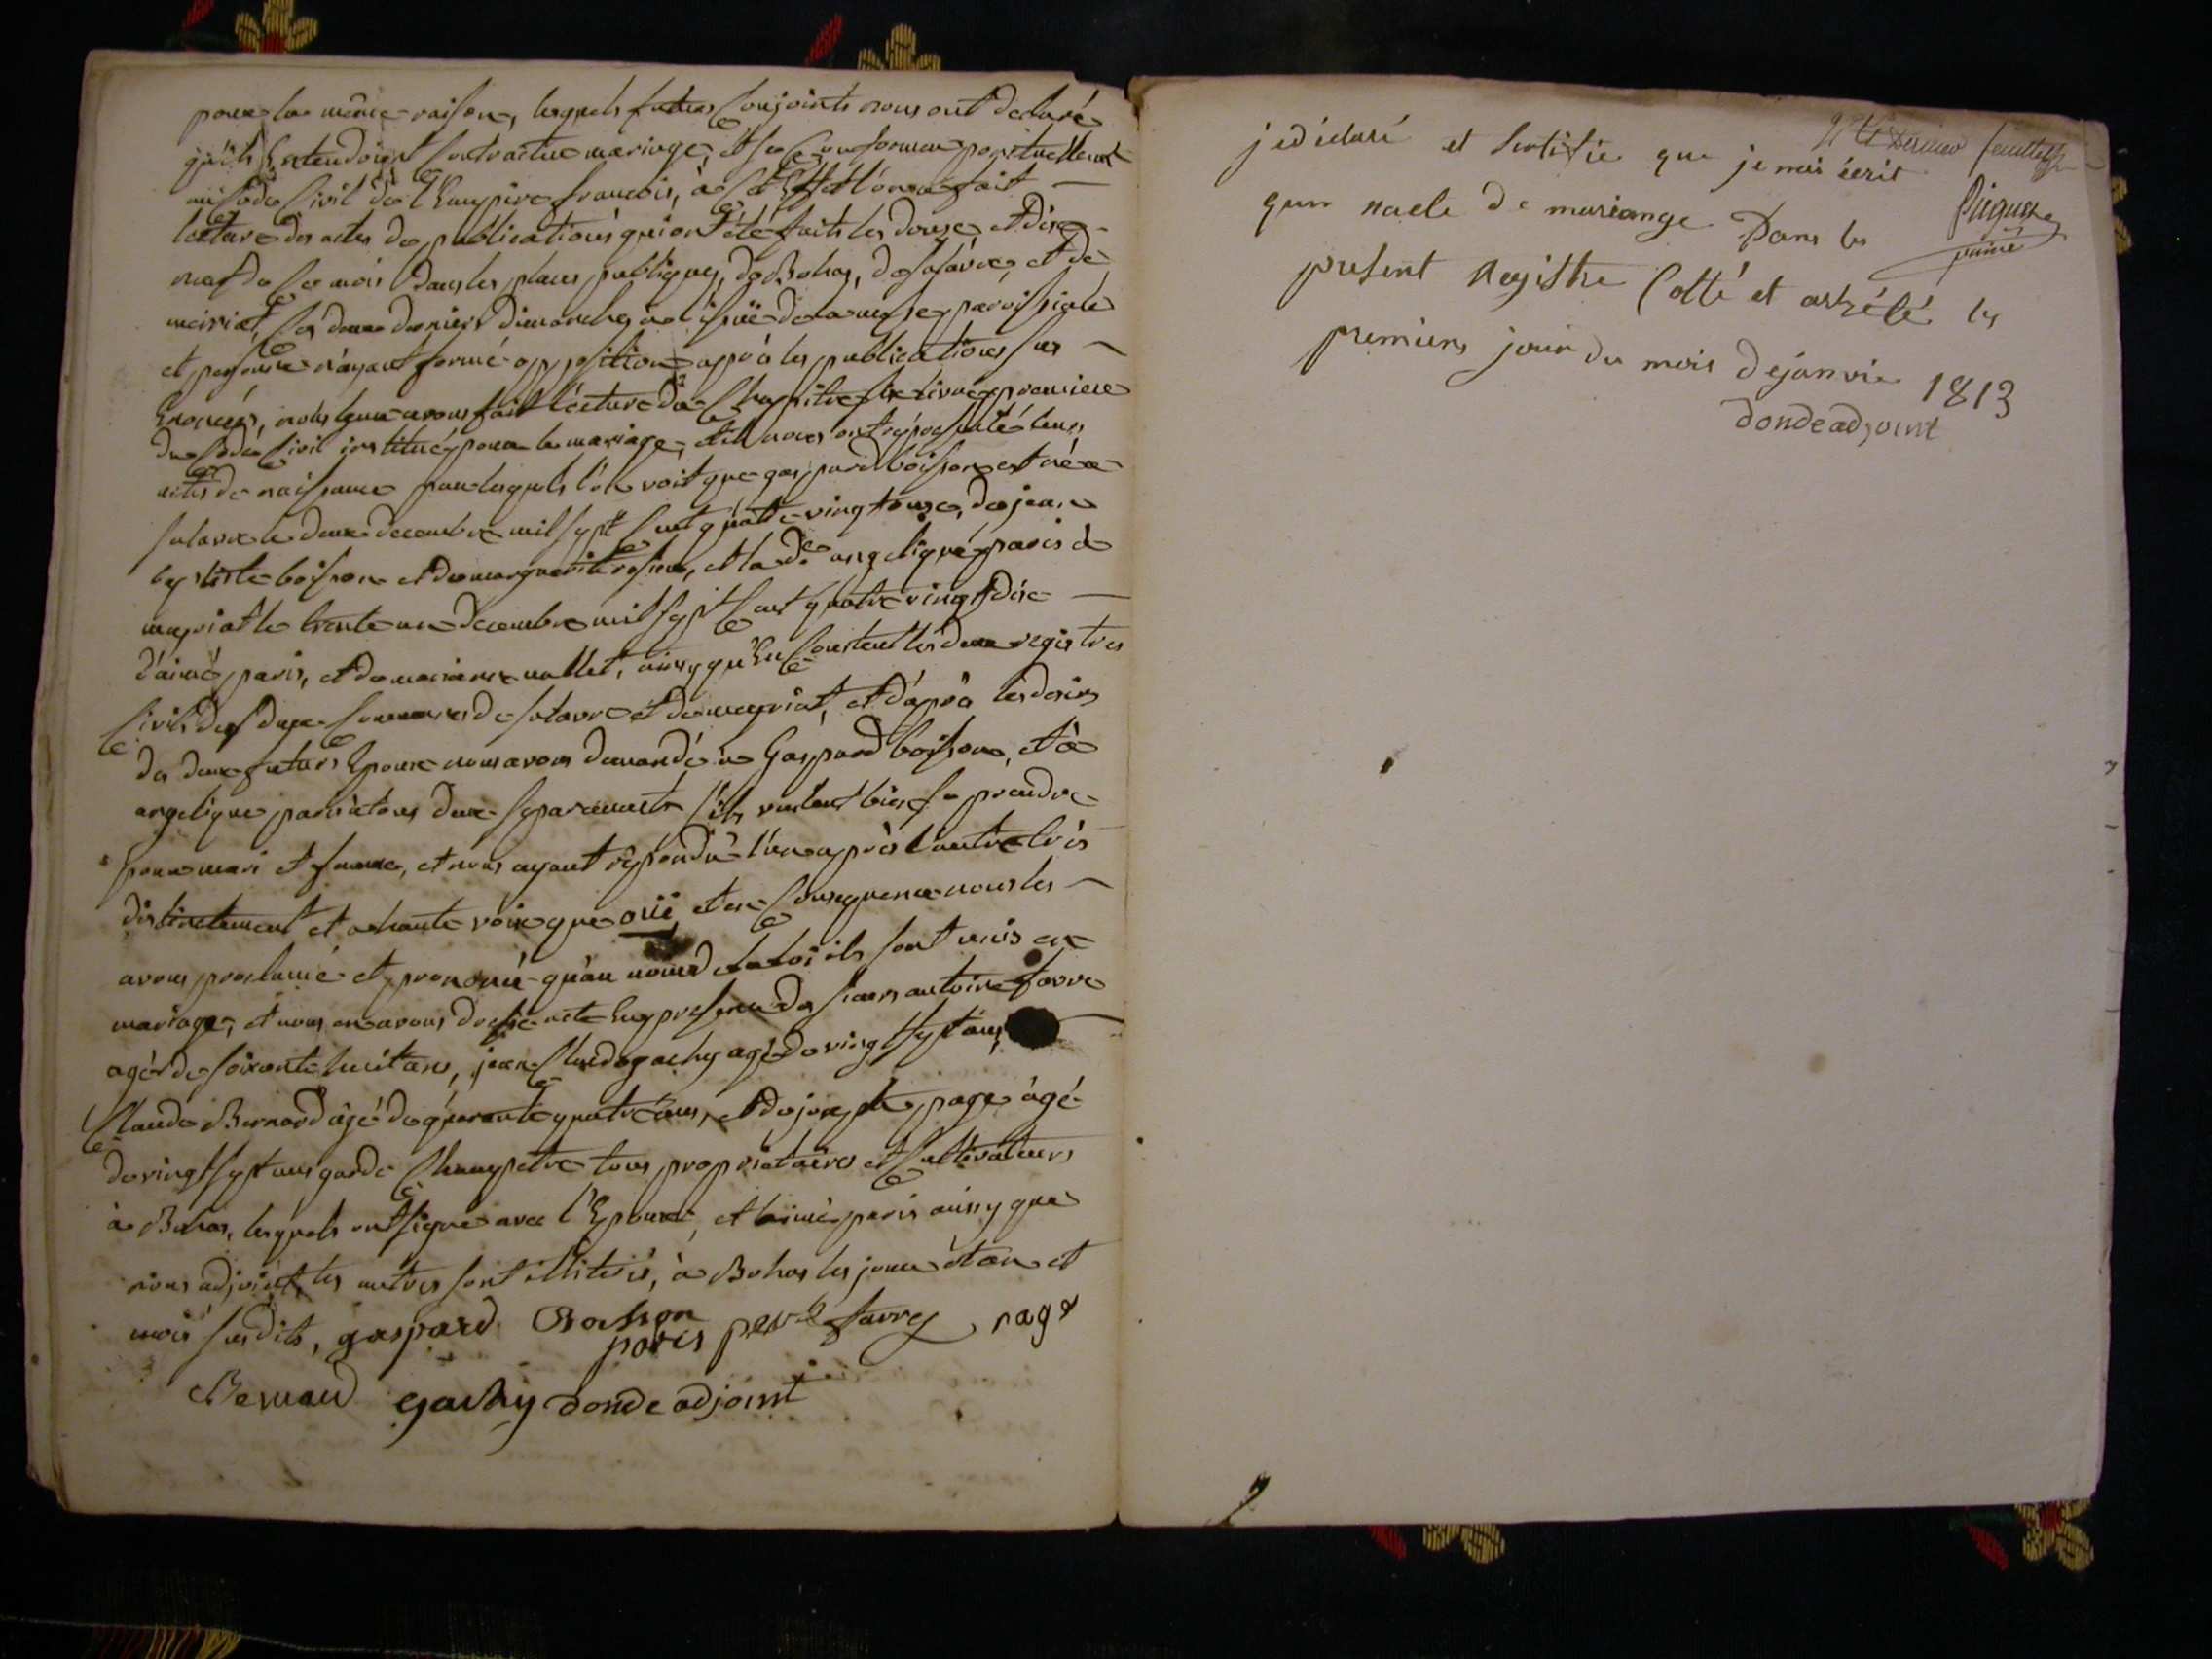 pour la même raison, lesquels futurs Conjoints nous ont declaré
qu'ils Entendoient Contracter mariage, et se Conformer
au Code Civil de l'Empire francois, à Cet Effet l'on a fait
lecture des actes de publications qui ont été faits les douze et dix
neuf de Ce mois dans les places publiques, de Bohas, de salavre, et de
meiriat, les deux derniers dimanches à l'issuë de la messe paroissiale
et personne n'ayant formé opposition après les publications sus
Enoncées, nous leur avons fait lecture du Chapitre livre premiere
du Code Civil institué pour le mariage, et ils nous ont représenté leurs
actes de naissance par lesquels l'on voit que gaspard boisson est né a
salavre le deux decembre mil sept Cent quatre vingt onze, de jean
baptiste boisson et de marguerite, et la de angelique paris à
meyriat le trente un decembre mil sept Cent quatre vingt dix
d'aimé paris, et de mallet, ainsy qu'En Constent les deux registres
Civils des deux Communes de salavre et de meyriat, et d'après les desirs
des deux futurs Epoux nous avons demandé à Gaspard boisson, et à
angelique paris à tous deux separement s'ils veulent bien se prendre
pour mari et femme, et nous ayant répondu l'un après l'autre très
distinctement et a haute voix que ouï, et en Consequence nous les
avons proclamé et prononcé qu'au nom de la loi ils sont unis en
mariage, et nous en avons dressé acte En presence des sieurs antoine favre
agé de soixante huit ans, jean Claude gachy agé de vingt sept ans,
Claude Bernard âgé de quarante quatre ans, et de joseph page âgé
de vingt sept ans garde Champetre tous propriétaires et Cultivateurs
à Bohas, lesquels ont signé avec l'Epoux, et aimé paris ainsy que
nous adjoint, les autres sont illiterés, à Bohas les jour et an et
mois susdits, gaspard Boisson paris pere favre page
Bernard gachy donde adjoint
dernier feuillet
je déclaré et sertifie que je nais écrit
quun nacte de mariange Dans les
present Registre Cotté et arrété les
premiers jour du mois dejanvie 1813
donde adjoint
maire